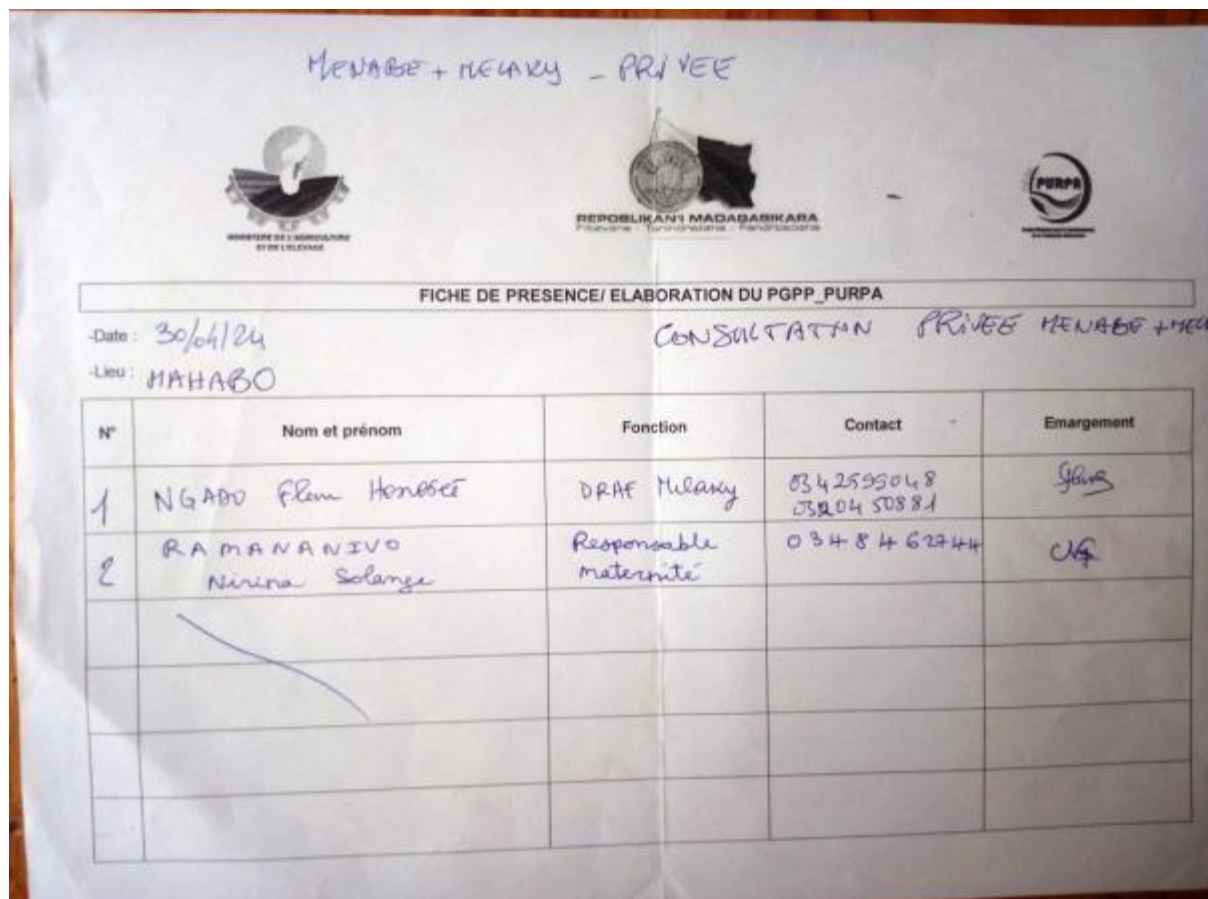 MENABE + MELAKY - PRIVEE
MINISTERE DE L'AGRICULTURE
ET DE L'ELEVAGE
REPOBLIKAN'I MADAGASIKARA
Fitiavana - Tanindrazana - Fandrosoana
PURPA
FICHE DE PRESENCE/ ELABORATION DU PGPP_PURPA
-Date : 30/04/24
CONSULTATION PRIVEE MENABE + MELA
-Lieu : MAHABO
N° Nom et prénom Fonction Contact Emargement
1 NGABO Honoré DRAE Melaky 0342595048
0320450881
2 RAMANANIVO Responsable 0348462744
Nirina Solange maternité